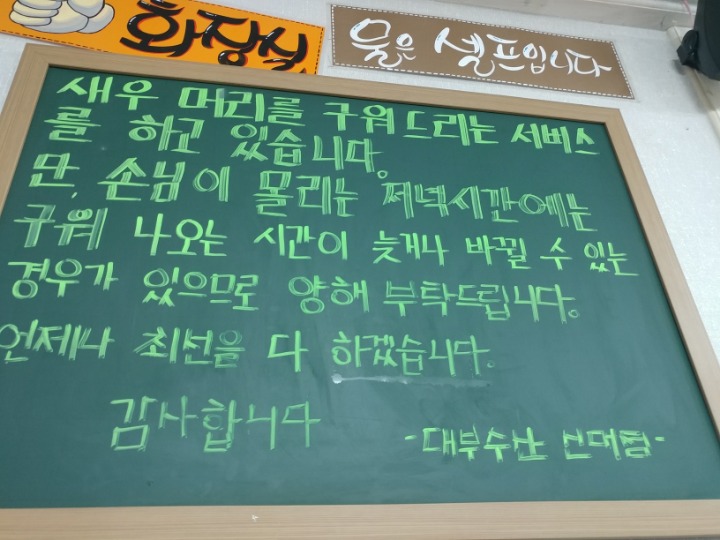 화장실
물은 셀프입니다
새우 머리를 구워드리는 서비스
를 하고 있습니다.
단, 손님이 몰리는 저녁시간에는
구워 나오는 시간이 늦거나 바뀔 수 있는
경우가 있으므로 양해 부탁드립니다.
언제나 최선을 다 하겠습니다.
감사합니다
-대부수산 신머점-